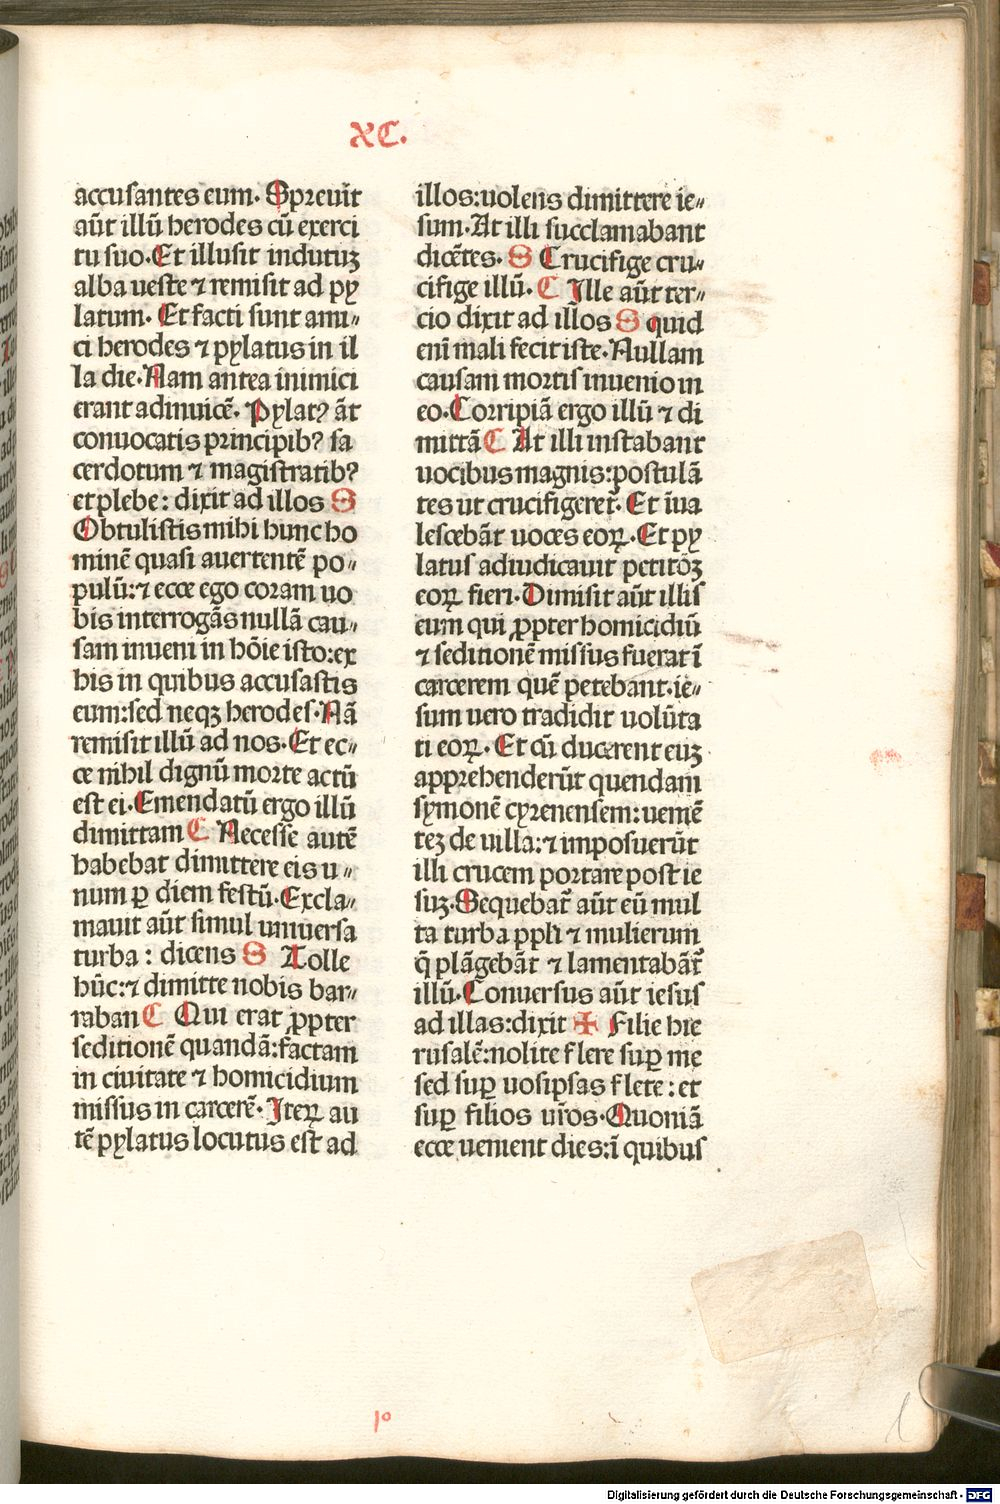 XC.
accusantes eum. Spreuit
aūt illū herodes cū exerci
tu suo. Et illusit indutuꝫ
alba ueste ⁊ remisit ad py
latum. Et facti sunt ami⸗
ci herodes ⁊ pylatus in il
la die. Nam antea inimici
erant adinuicē. Pylatꝰ āt
conuocatis principibꝰ sa
cerdotum ⁊ magistratibꝰ
et plebe: dixit ad illos S
Obtulistis mihi hunc ho
minē quasi auertentē po⸗
pulū:⁊ ecce ego coram uo
bis interrogās nullā cau⸗
sam inueni in hōie isto:ex
his in quibus accusastis
eum:sed neqꝫ herodes. Nā
remisit illū ad nos. Et ec⸗
ce nihil dignū morte actū
est ei. Emendatū ergo illū
dimittam C Necesse autē
habebat dimittere eis u⸗
num ꝑ diem festū. Excla⸗
mauit aūt simul uniuersa
turba: dicens S Tolle
hūc:⁊ dimitte nobis bar⸗
raban C Qui erat ꝓpter
seditionē quandā:factam
in ciuitate ⁊ homicidium
missus in carcerē. Iteꝝ au
tē pylatus locutus est ad
illos:uolens dimittere ie⸗
sum. At illi succlamabant
dicētes. S Crucifige cru⸗
cifige illū. C Ille aūt ter⸗
cio dixit ad illos S quid
enī mali fecit iste. Nullam
causam mortis inuenio in
eo. Corripiā ergo illū ⁊ di
mittā C At illi instabant
uocibus magnis:postulā
tes ut crucifigeret̄. Et īua
lescebāt uoces eoꝝ. Et py
latus adiudicauit petitōꝫ
eoꝝ fieri. Dimisit aūt illis
eum qui ꝓpter homicidiū
⁊ seditionē missus fuerat ī
carcerem quē petebant.ie⸗
sum uero tradidit uolūta
ti eoꝝ. Et cū ducerent euꝫ
apprehenderūt quendam
symonē cyrenensem:ueniē
teꝫ de uilla:⁊ imposuerūt
illi crucem portare post ie
suꝫ. Sequebat̄ aūt eū mul
ta turba ppli ⁊ mulierum
q̄ plāgebāt ⁊ lamentabāt̄
illū. Conuersus aūt iesus
ad illas:dixit ✠ Filie hie
rusalē:nolite flere suꝑ me
sed suꝑ uosipsas flete: et
suꝑ filios ur̄os. Quoniā
ecce uenient dies:ī quibus
Digitalisierung gefördert durch die Deutsche Forschungsgemeinschaft - DFG